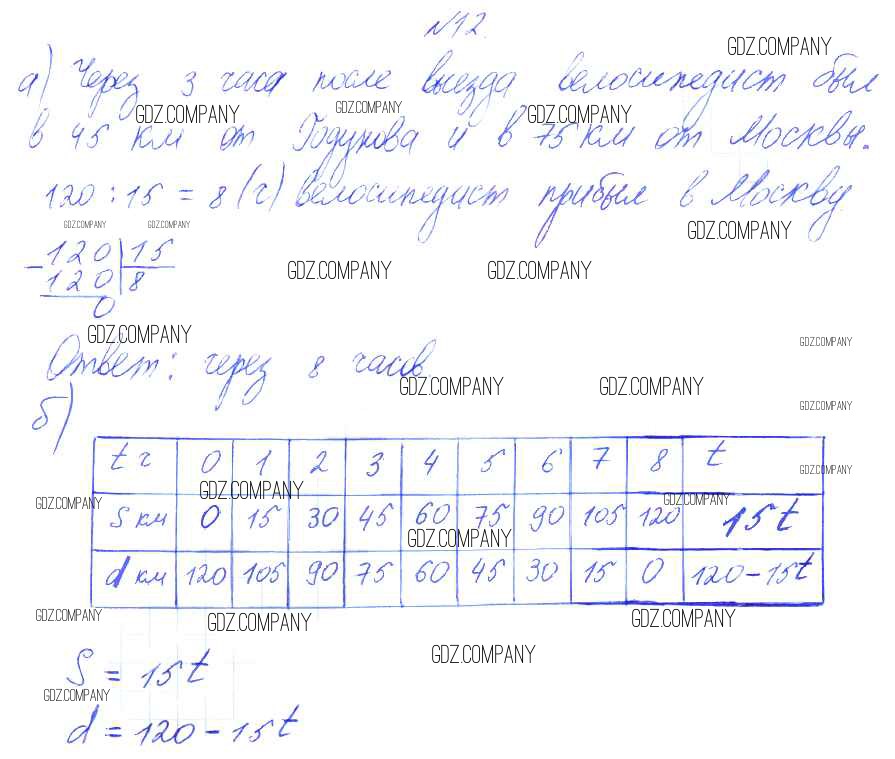 №12.
GDZ.COMPANY
а) Через 3 часа после выезда велосипедист был
GDZ.COMPANY GDZ.COMPANY GDZ.COMPANY
в 45 км от Годунова и в 75 км от Москвы.
120 : 15 = 8 (ч) велосипедист прибыл в Москву
GDZ.COMPANY GDZ.COMPANY GDZ.COMPANY
- 120 | 15
GDZ.COMPANY GDZ.COMPANY
120 | 8
0
GDZ.COMPANY GDZ.COMPANY
Ответ: через 8 часов
GDZ.COMPANY GDZ.COMPANY
б)
GDZ.COMPANY
t ч 0 1 2 3 4 5 6 7 8 t
GDZ.COMPANY
GDZ.COMPANY GDZ.COMPANY GDZ.COMPANY
S км 0 15 30 45 60 75 90 105 120 15t
GDZ.COMPANY
d км 120 105 90 75 60 45 30 15 0 120-15t
GDZ.COMPANY GDZ.COMPANY GDZ.COMPANY
GDZ.COMPANY
S = 15t
GDZ.COMPANY
d = 120 - 15t